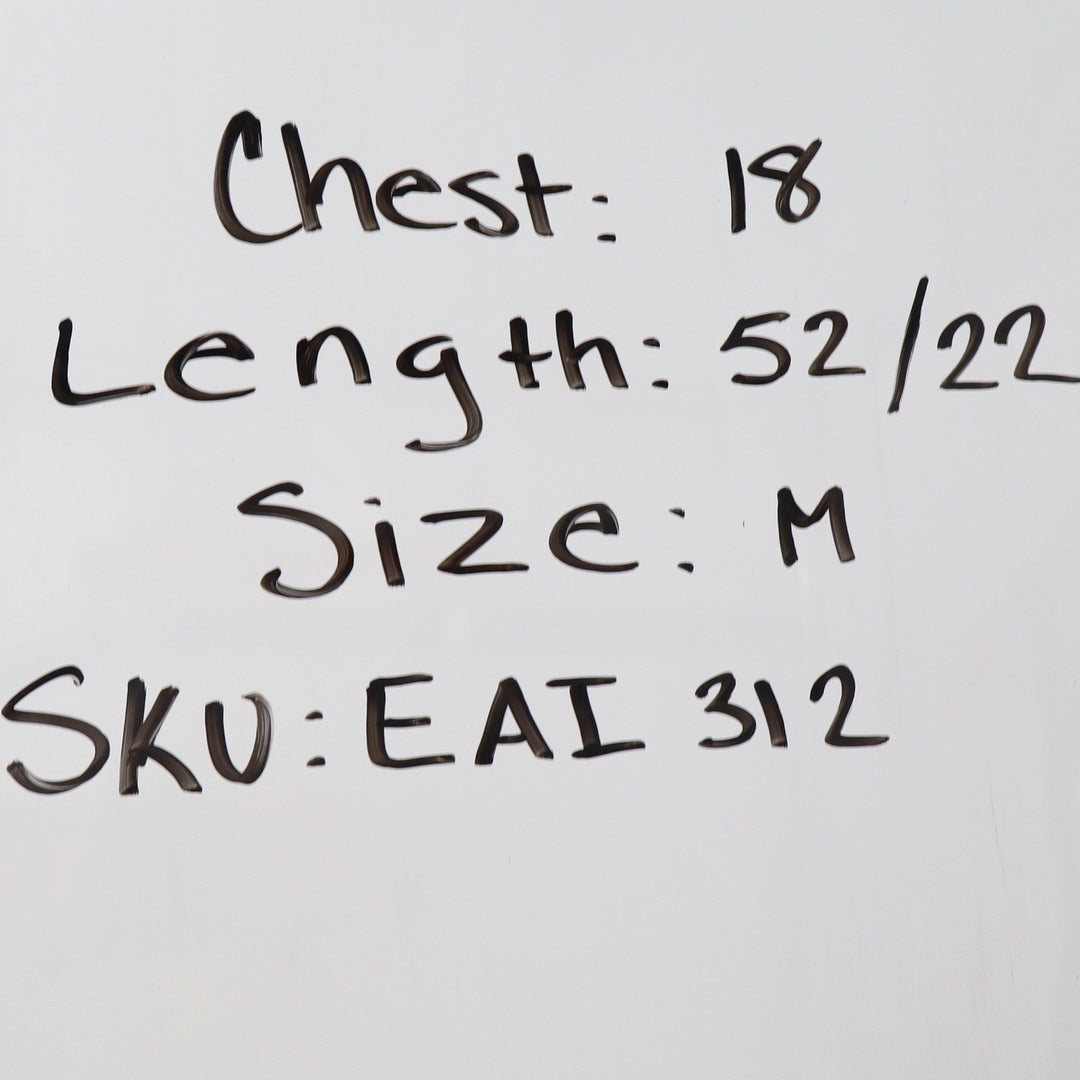 Chest: 18
Length: 52/22
Size: M
SKU: EAI 312